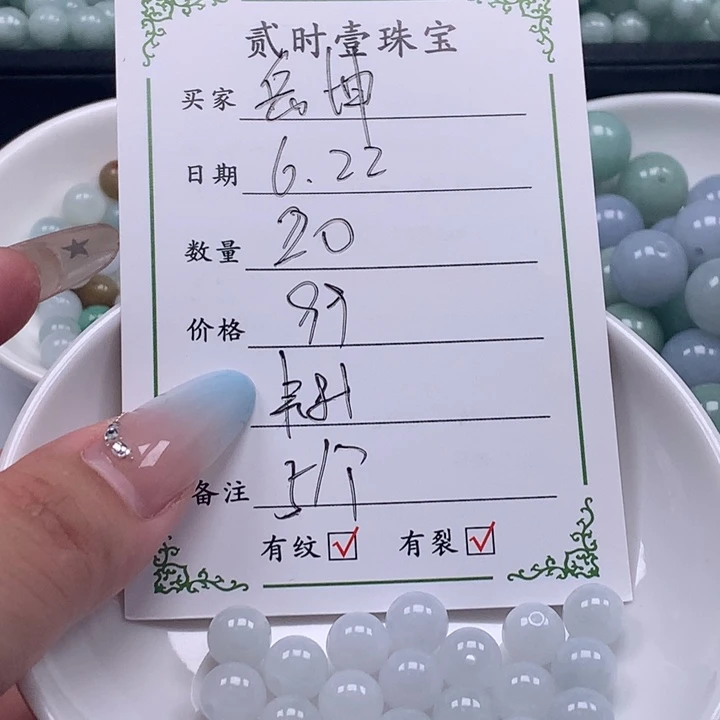 贰时壹珠宝
买家 岳坤
日期 6.22
数量 20
价格 99
备注
有纹 ☑ 有裂 ☑